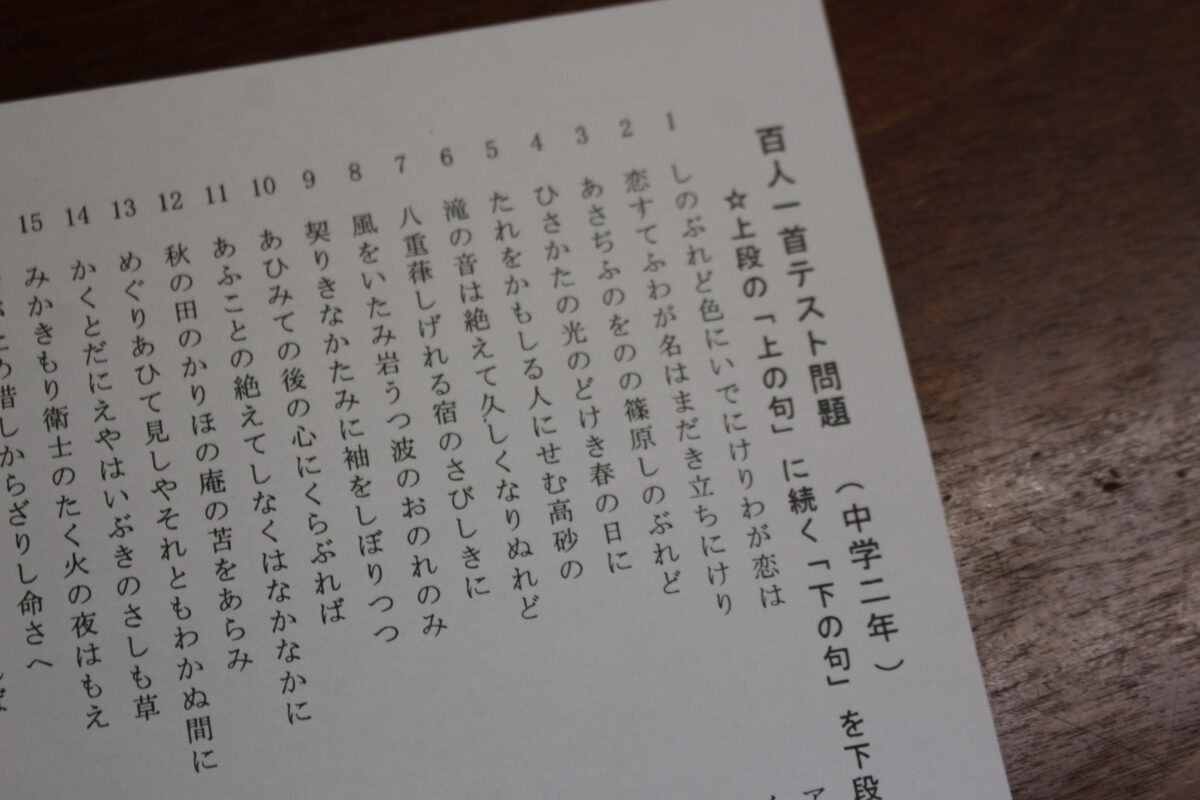 百人一首テスト問題　（中学二年）
☆上段の「上の句」に続く「下の句」を下段
1　しのぶれど色にいでにけりわが恋は
2　恋すてふわが名はまだき立ちにけり
3　あさぢふのをのの篠原しのぶれど
4　ひさかたの光のどけき春の日に
5　たれをかもしる人にせむ高砂の
6　滝の音は絶えて久しくなりぬれど
7　八重葎しげれる宿のさびしきに
8　風をいたみ岩うつ波のおのれのみ
9　契りきなかたみに袖をしぼりつつ
10　あひみての後の心にくらぶれば
11　あふことの絶えてしなくはなかなかに
12　秋の田のかりほの庵の苫をあらみ
13　めぐりあひて見しやそれともわかぬ間に
14　かくとだにえやはいぶきのさしも草
15　みかきもり衛士のたく火の夜はもえ
惜しからざりし命さへ
ア